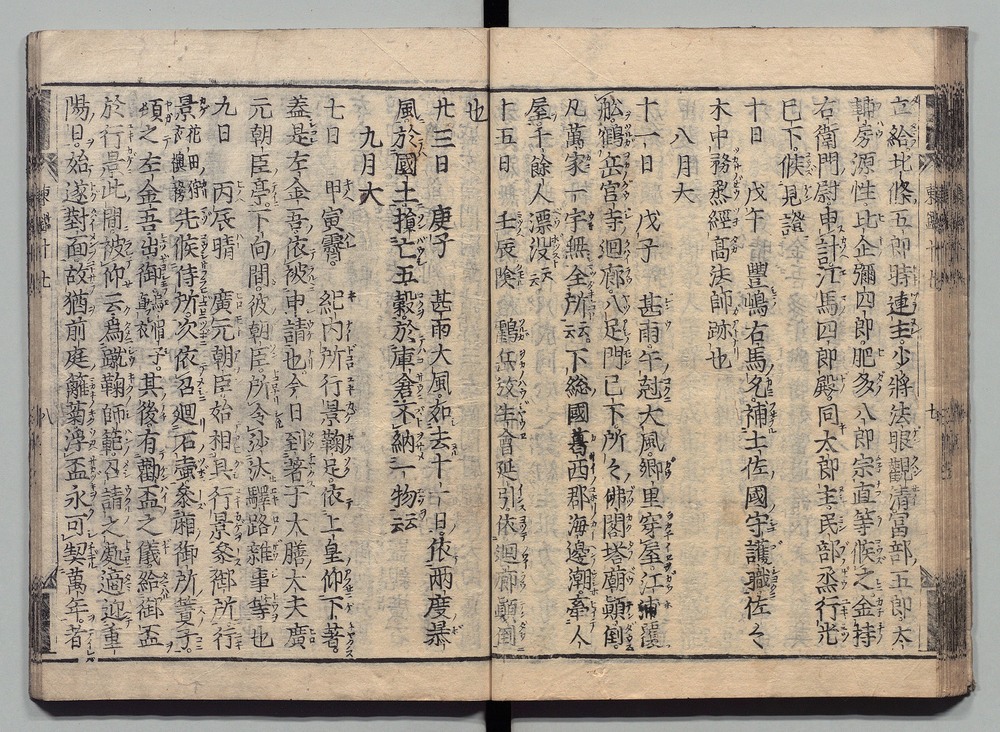 立給北條五郎時連主少將法眼觀清冨部五郎太
輔房源性比企彌四郎肥多八郎宗直等候之金持
右衛門尉申計江馬四郎殿同太郎主民部丞行光
已下候見證
十日　戊午豐嶋右馬允補土佐國守護職佐々
木中務丞經高法師跡也
八月大
十一日　戊子　甚雨午剋大風郷里穿屋江浦覆
舩鶴岳宮寺廻廊八足門已下所々佛閣塔廟顚倒
凡萬家一宇無全所云云下総國葛西郡海邊潮牽人
屋千餘人漂没云云
十五日　壬辰陰　鶴岳放生會延引依廻廊顚倒
也
廿三日　庚子　甚雨大風如去十一日依兩度暴
風於國土損亡五穀於庫倉不納一物云云
九月大
七日　甲寅霽　紀内所行景鞠足依上皇仰下著
蓋是左金吾依被申請也今日到著于太膳大夫廣
元朝臣亭下向間彼朝臣所令沙汰驛路雜事等也
九日　丙辰晴　廣元朝臣始相具行景參御所行
景先候侍所次依召廻石壺參廂御所簀子
頃之左金吾出御其後有勸盃之儀給御盃
於行景此間被仰云爲蹴鞠師範召請之處適迎重
陽日始遂對面故猶前庭籬菊浮盃永可契萬年者